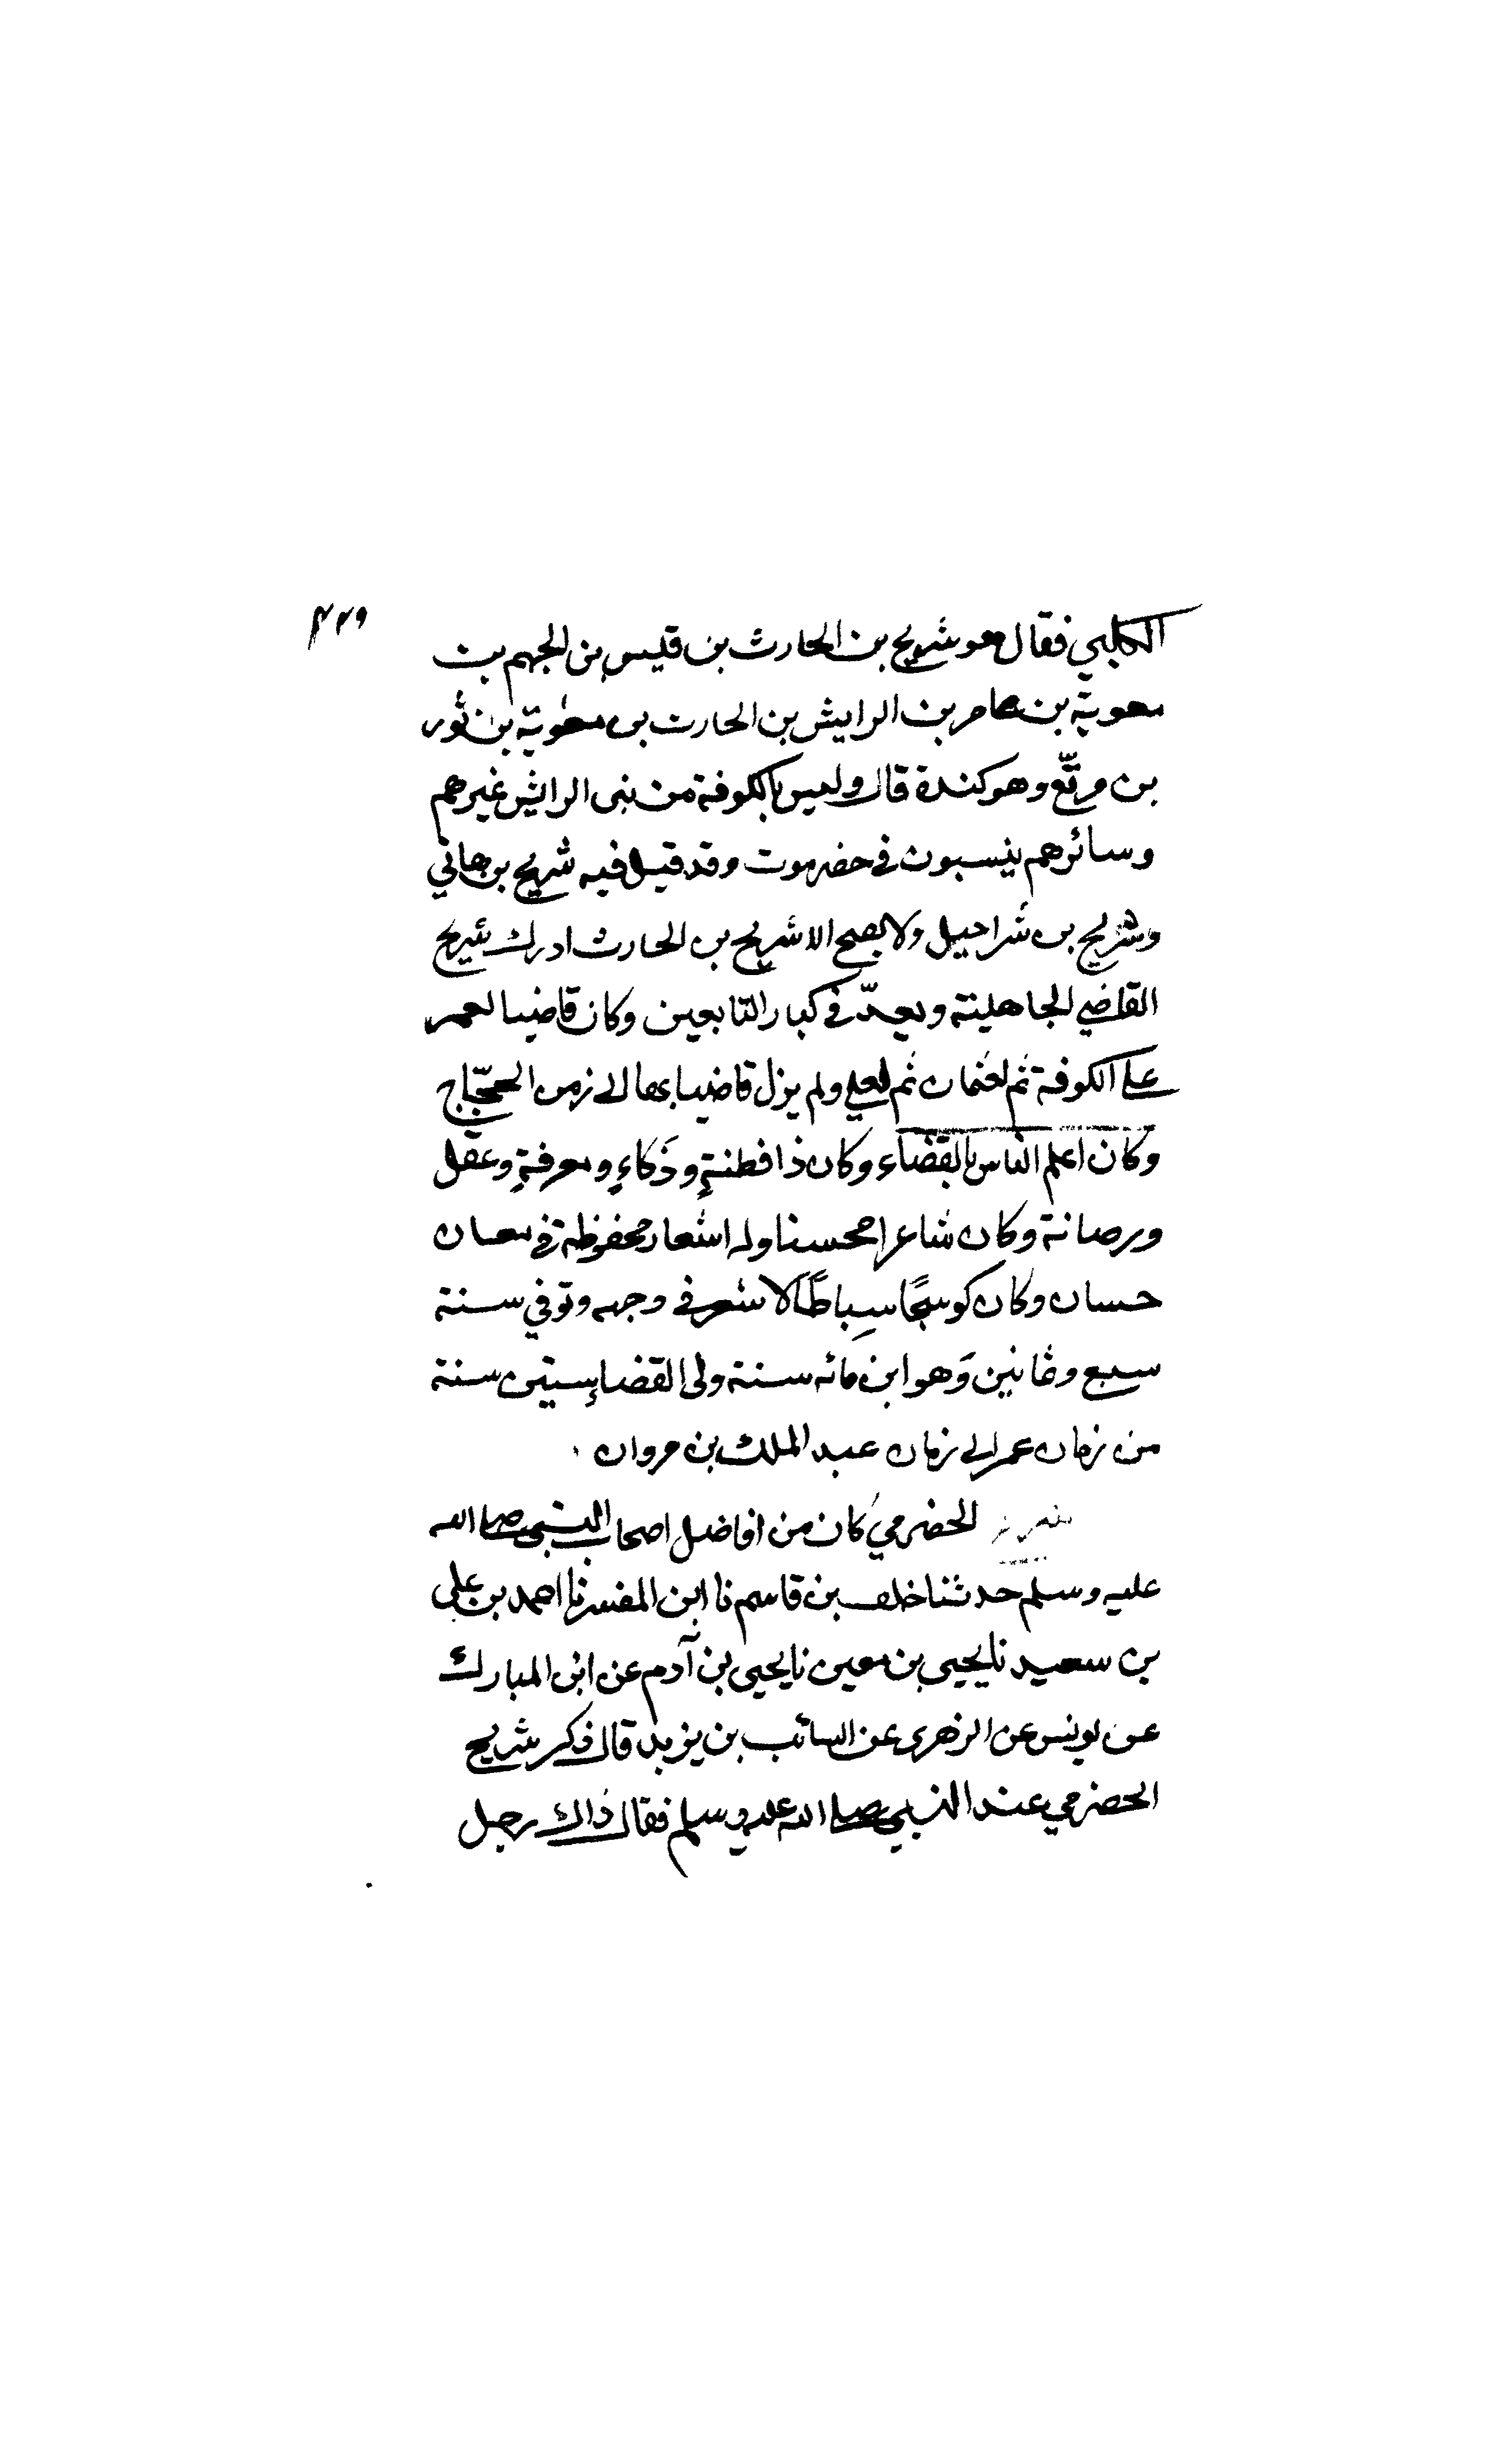 ٤٢٩
الكلبي فقال هو شريح بن الحارث بن قيس بن الجهم بن
معوية بن عامر بن الرايش بن الحارث بن معوية بن ثور
بن مرتّع وهو كندة قال وليس بالكوفة من بنى الرائش غيرهم
وسائرهم ينسبون في حضرموت وقد قيل فيه شريح بن هاني
وشريح بن شراحيل ولا يصح الا شريح بن الحارث ادرك شريح
القاضي الجاهلية ويعدّ في كبار التابعين وكان قاضيا لعمر
على الكوفة ثم لعثمان ثم لعلي ولم يزل قاضيا بها الى زمن الحجّاج
وكان اعلم الناس بالقضاء وكان ذا فطنةٍ وذَكاءٍ ومعرفةٍ وعقل
ورصانة وكان شاعرا محسنا وله اشعار محفوظة في معان
حسان وكان كوسجًا سِباطًا لا شعر في وجهه وتوفي سنة
سبع وثمانين وَهو ابن مائه سنة ولى القضا ستين سنة
من زمان عمر الى زمان عبد الملك بن مروان
الحضرمي كان من افاضل اصحاب النبي صلى الله
عليه وسلم حدثنا خلف بن قاسم نا ابن المفسر نا احمد بن على
بن سعيد نا يحيى بن معين نا يحيى بن آدم عن ابن المبارك
عن يونس عن الزهرى عن السائب بن يزيد قال ذكر شريح
الحضرمي عند النبي صلى الله عليه وسلم فقال ذاك رجل